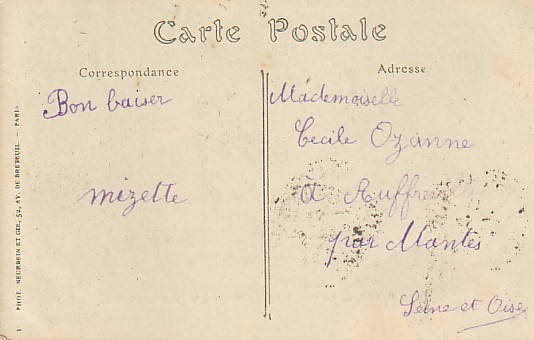 Carte Postale
Correspondance
Adresse
Bon baiser
mizette
Mademoiselle
Cecile Ozanne
à
par Mantes
Seine et Oise
PHOT. NEURDEIN ET CIE, 52, AV. DE BRETEUIL. — PARIS